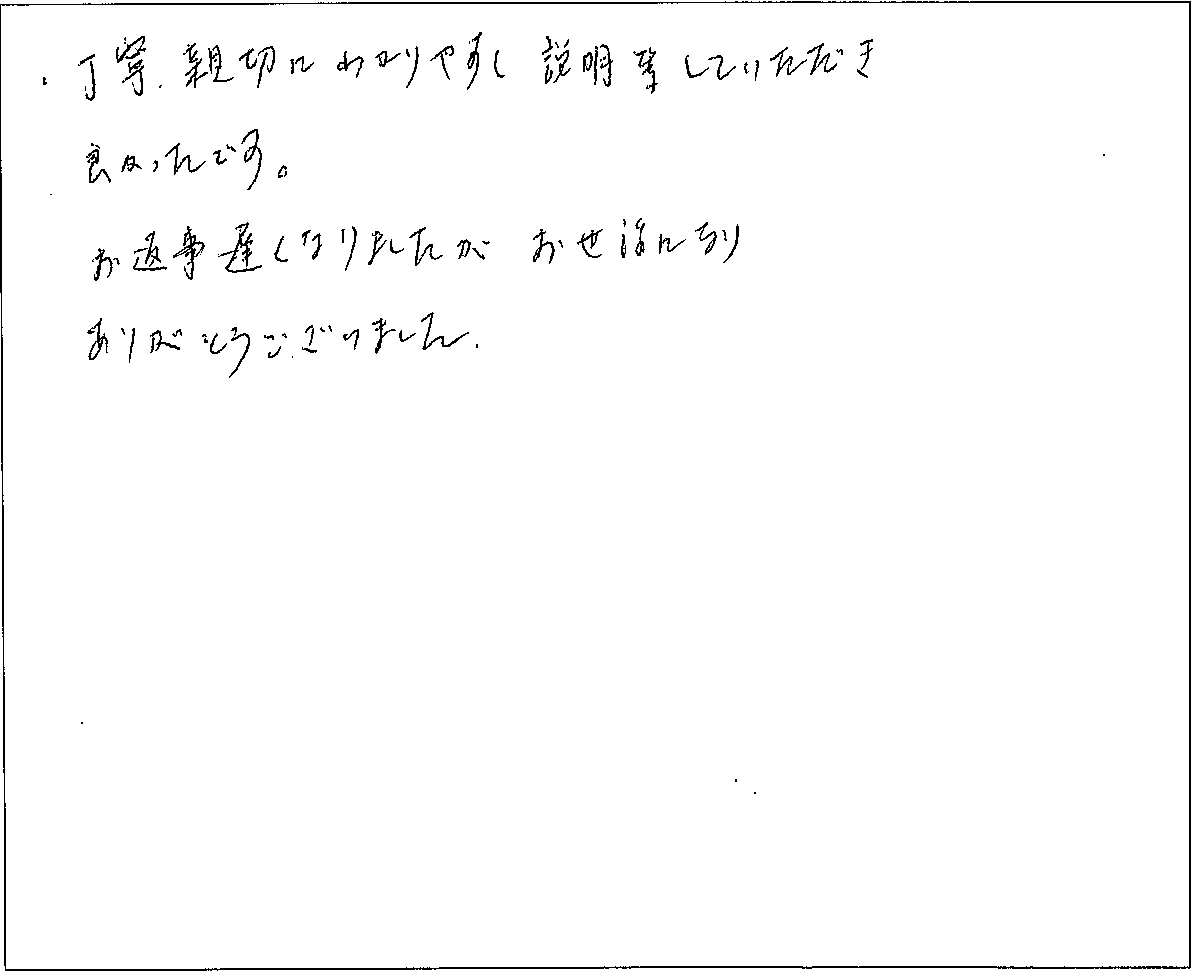 ・丁寧、親切にわかりやすく説明等していただき
良かったです。
お返事遅くなりましたがお世話になり
ありがとうございました。